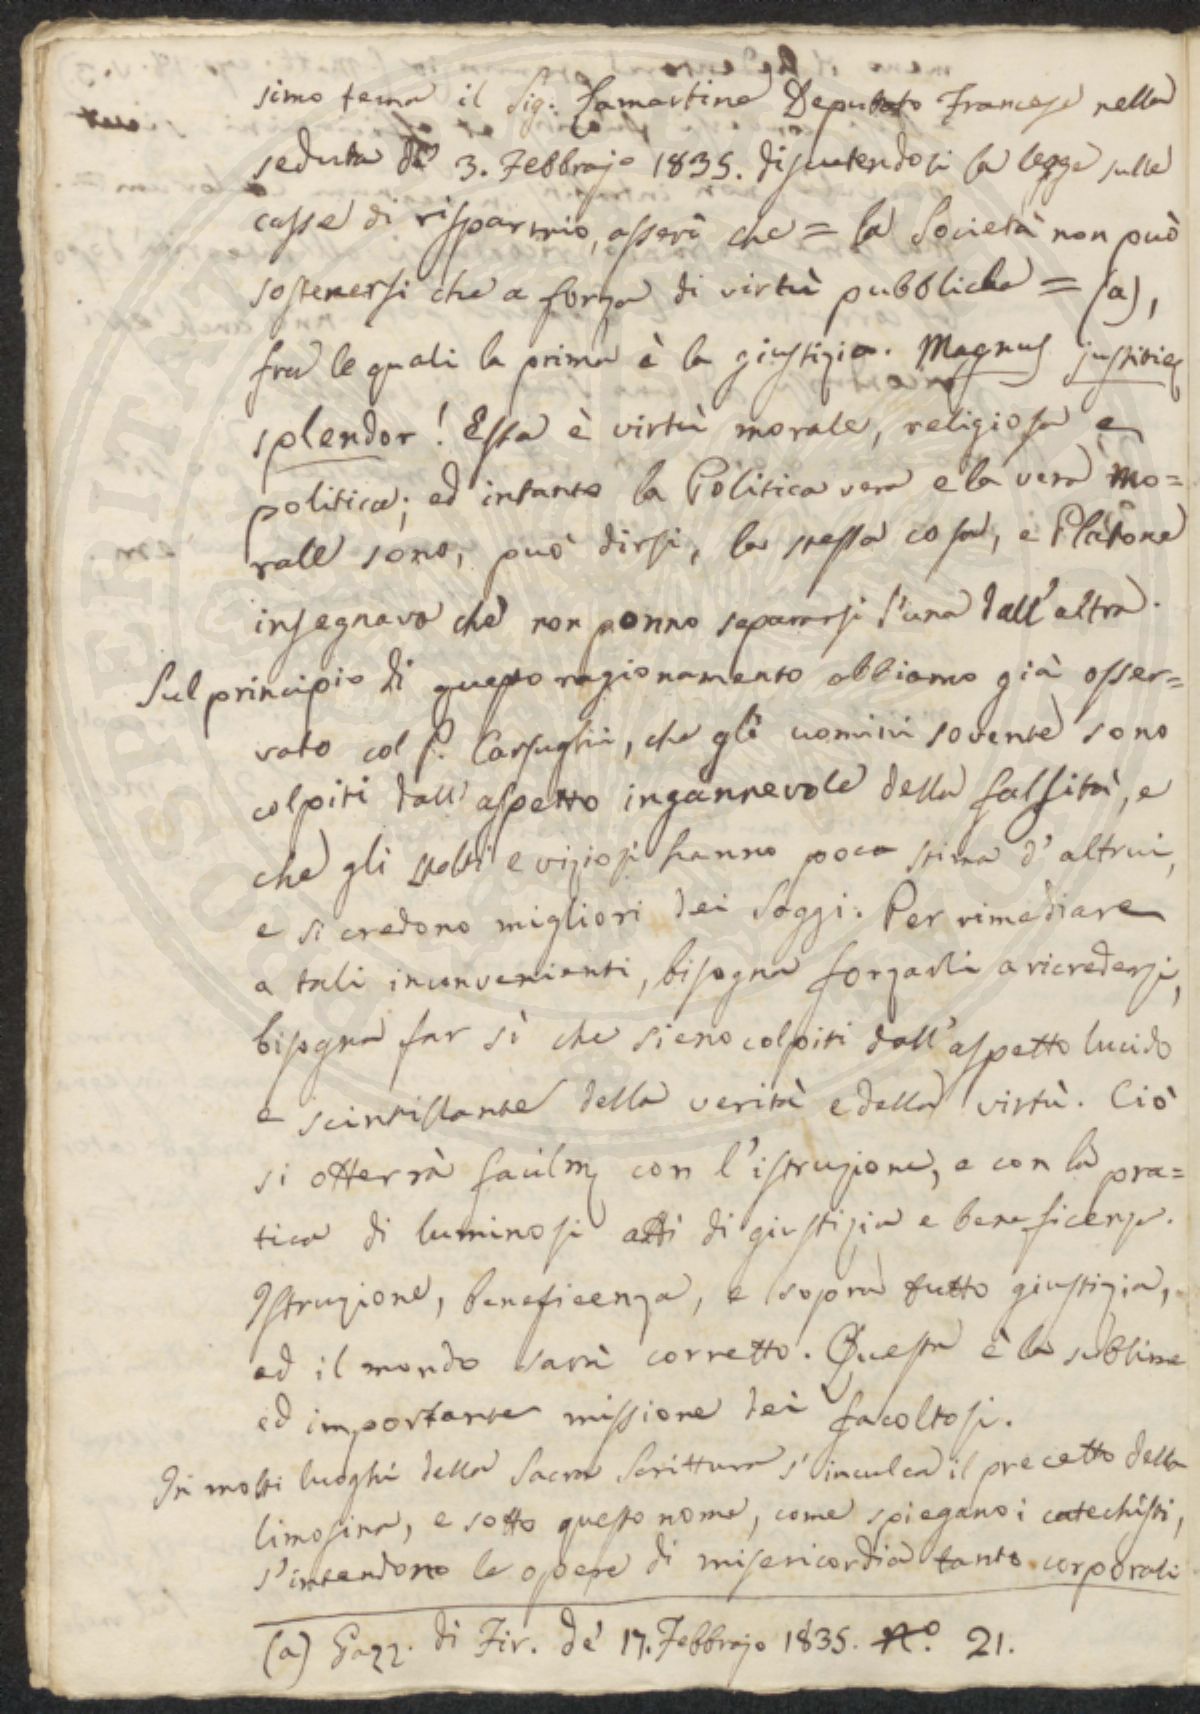 simo tema il Sig. Lamartine Deputato Francese nella
seduta de' 3. Febbrajo 1835. discutendosi la legge sulle
casse di risparmio, asserì che = la Società non può
sostenersi che a forza di virtù pubbliche = (a),
fra le quali la prima è la giustizia. Magnus justitiae
splendor! Essa è virtù morale, religiosa e
politica; ed intanto la Politica vera e la vera mo=
rale sono, può dirsi, la stessa cosa, e Platone
insegnava che non ponno separarsi l'una dall'altra.
Sul principio di questo ragionamento abbiamo già osser=
vato col P. Carsughi, che gli uomini sovente sono
colpiti dall'aspetto ingannevole della falsità, e
che gli stolti e viziosi hanno poca stima d'altrui,
e si credono migliori dei Saggi. Per rimediare
a tali inconvenienti, bisogna forzarli a ricredersi,
bisogna far sì che sieno colpiti dall'aspetto lucido
e scintillante della verità e della virtù. Ciò
si otterrà facilm. con l'istruzione, e con la pra=
tica di luminosi atti di giustizia e beneficenza.
Istruzione, beneficenza, e sopra tutto giustizia,
ed il mondo sarà corretto. Questa è la sublime
ed importante missione dei facoltosi.
In molti luoghi della Sacra Scrittura s'inculca il precetto della
limosina, e sotto questo nome, come spiegano i catechisti,
s'intendono le opere di misericordia tanto corporali
(a) Gazz. di Fir. de' 17. Febbrajo 1835. n.° 21.